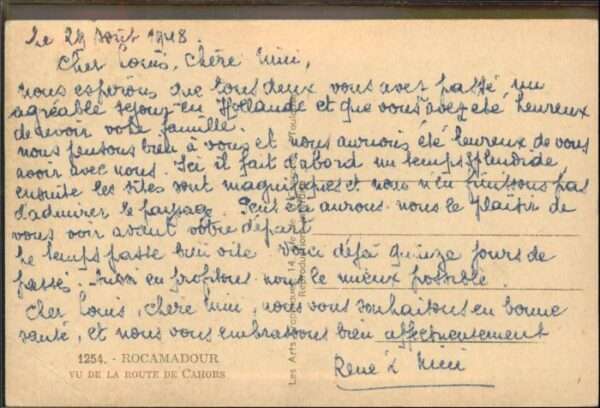 Le 29 Août 1948.
Cher Louis, Chère Mini,
nous espérions que tous deux vous avez passé un
agréable sejour en Hollande et que vous avez été heureux
de revoir votre famille.
nous pensons bien à vous et nous aurions été heureux de vous
avoir avec nous. Ici il fait d'abord un temps splendide
ensuite les sites sont magnifiques et nous n'en finissons pas
d'admirer le paysage. aurons nous le plaisir de
vous voir avant votre départ
Le temps passe bien vite voici déjà quinze jours de
passés. Aussi en profitons nous le mieux possible.
Cher Louis, chère Mini, nous vous souhaitons en bonne
santé, et nous vous embrassons bien affectueusement
René & Mimi
1254. - ROCAMADOUR
VU DE LA ROUTE DE CAHORS
Les Arts
Reproduction